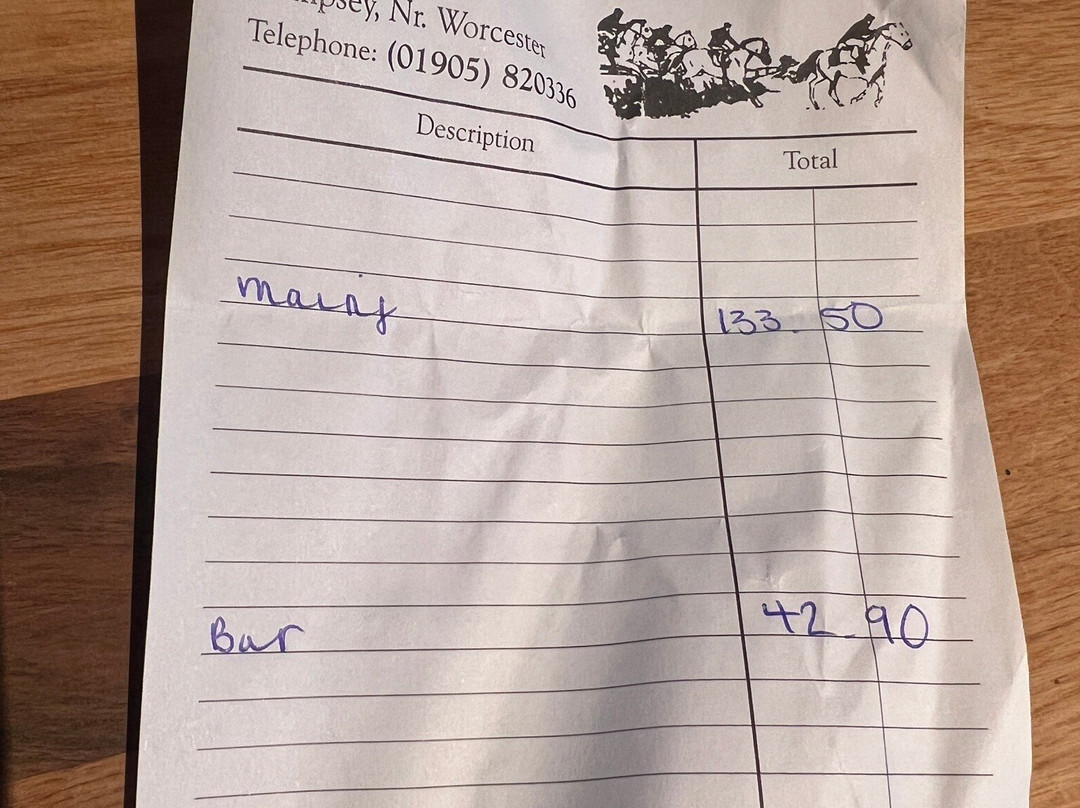 Nr. Worcester
Telephone: (01905) 820336
Description Total
mains 133.50
Bar 42.90